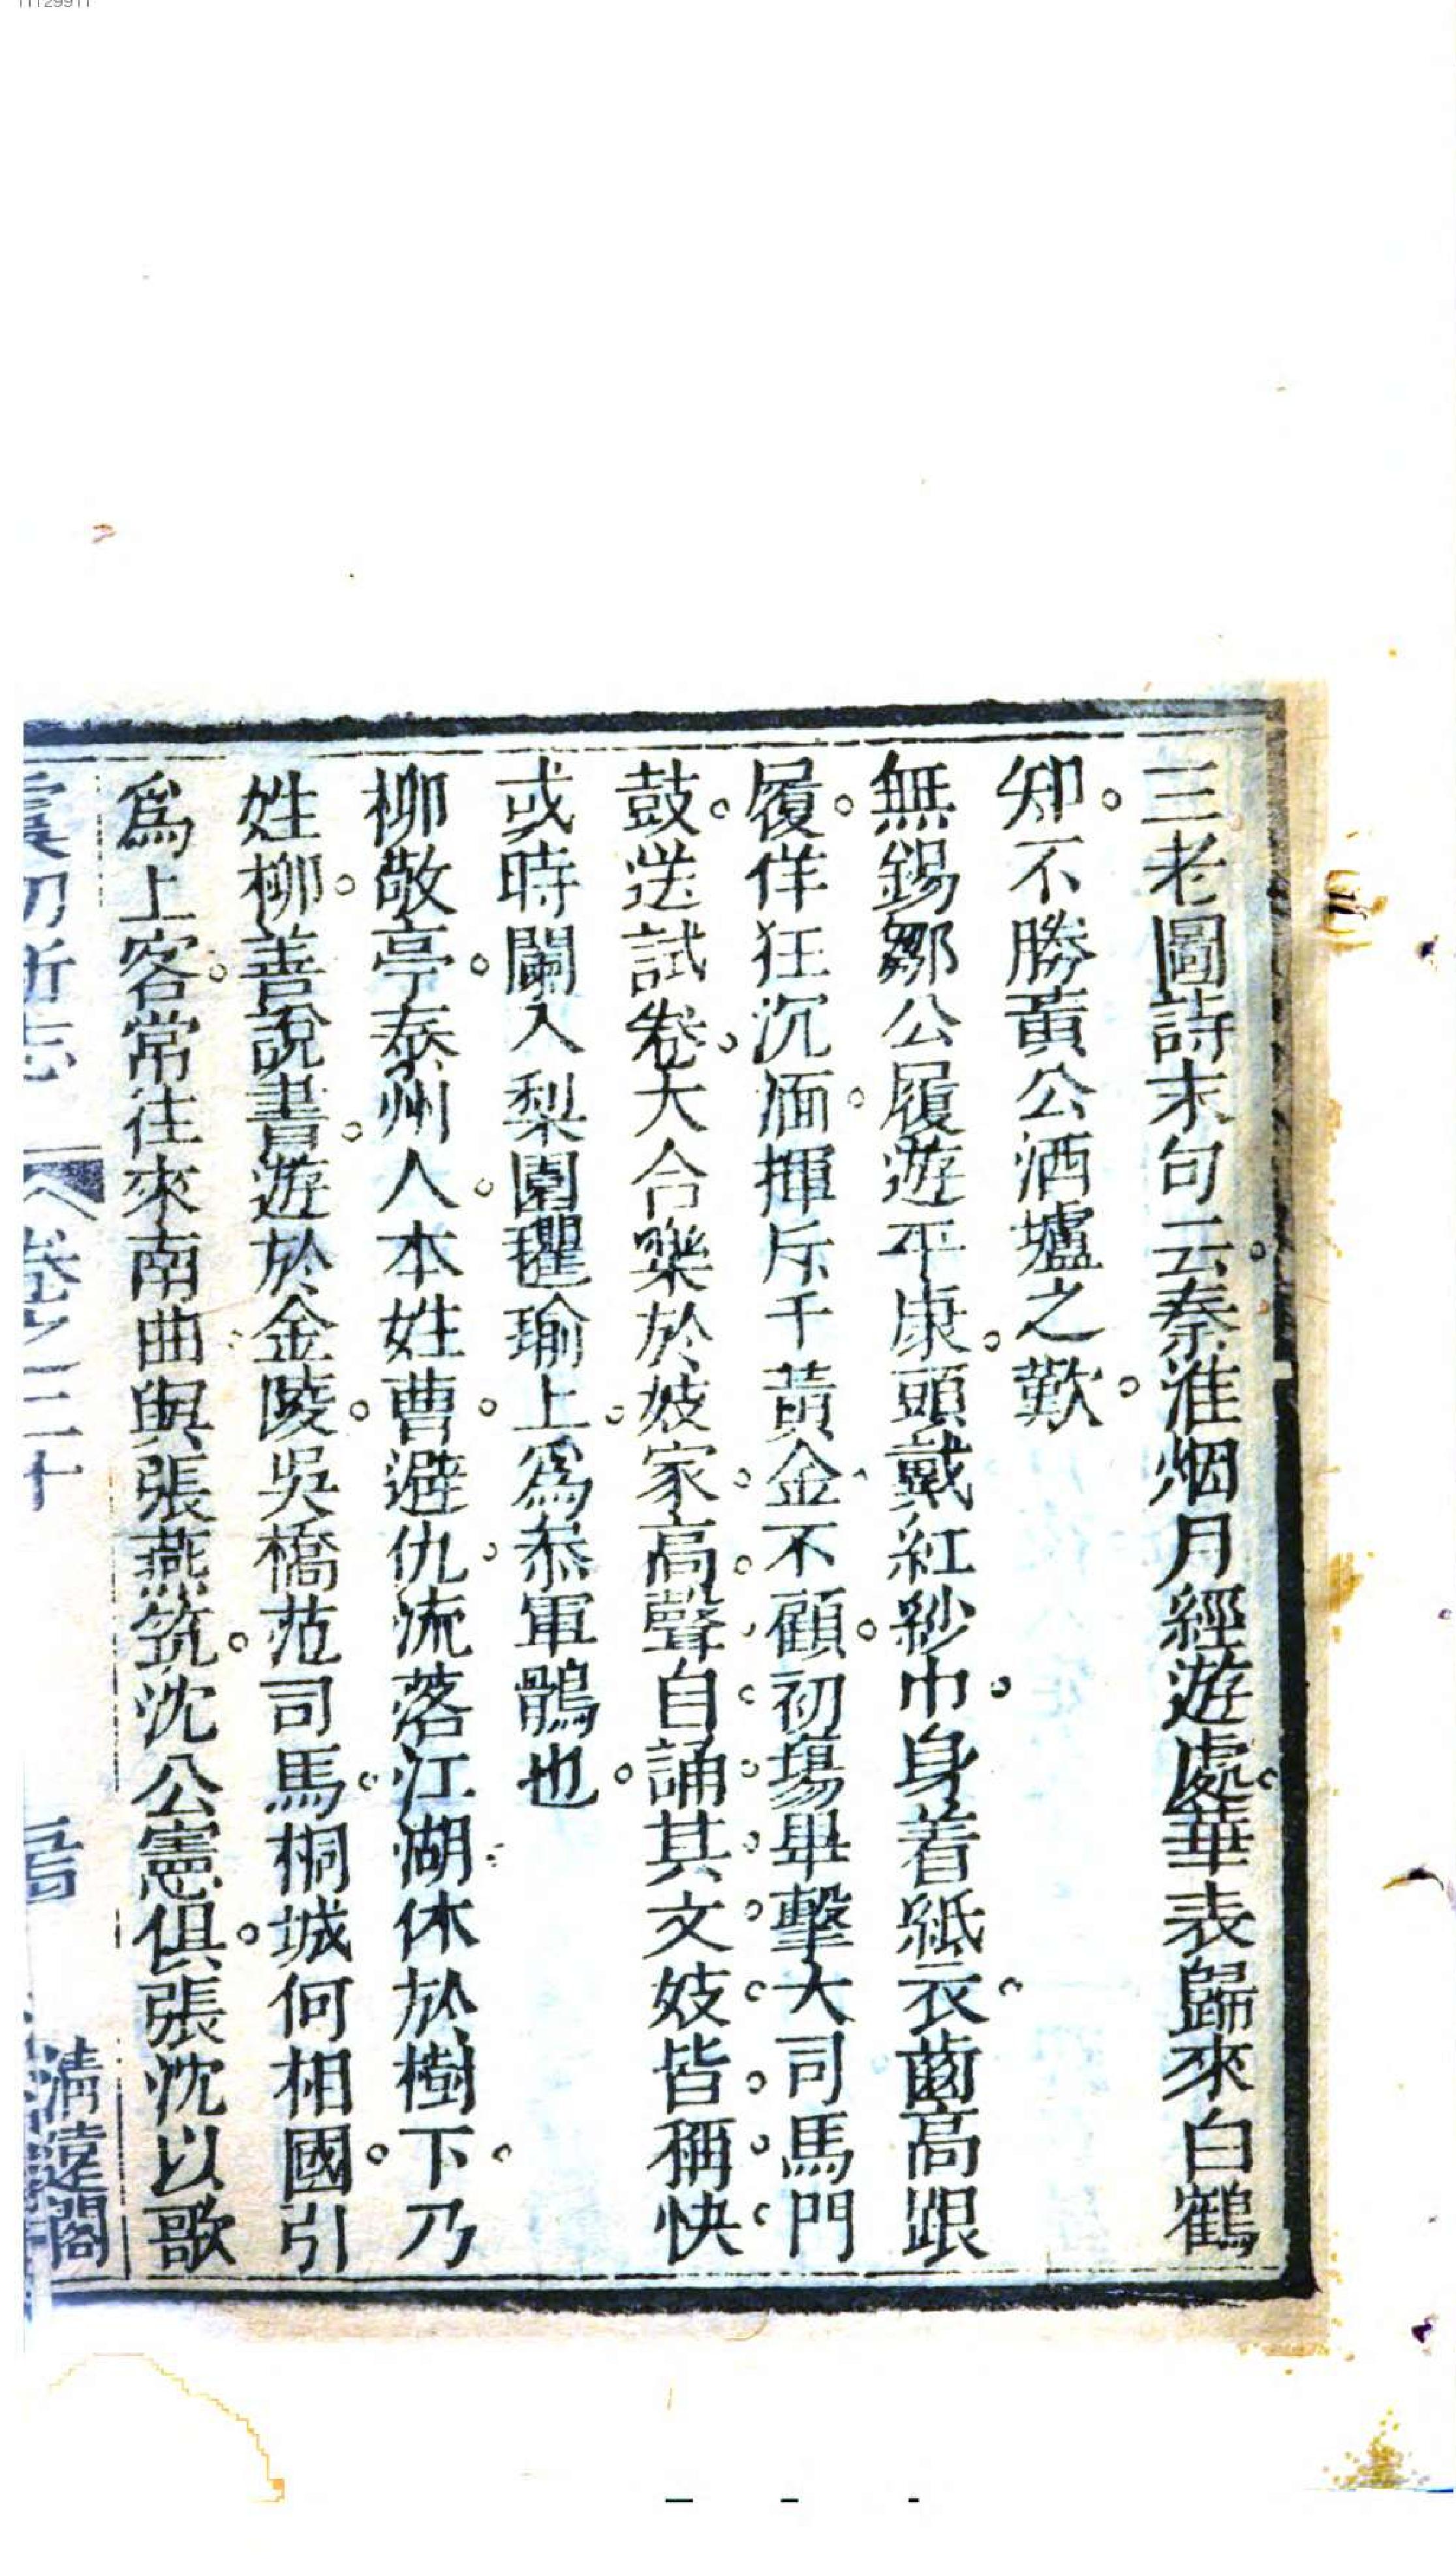 三老圖詩末句云秦淮烟月經遊處華表歸來白鶴
知不勝黃公酒壚之歎
無錫鄒公履遊平康頭戴紅紗巾身着紙衣齒高跟
履佯狂沉湎揮斥千黃金不顧初塲畢擊大司馬門
鼓送試卷大合樂於妓家高聲自誦其文妓皆稱快
或時闌入梨園氍毹上爲叅軍鶻也
柳敬亭泰州人本姓曹避仇流落江湖休於樹下乃
姓柳善說書遊於金陵吳橋范司馬桐城何相國引
爲上客常往來南曲與張燕筑沈公憲俱張沈以歌
虞初新志 卷之二十
清遠閣